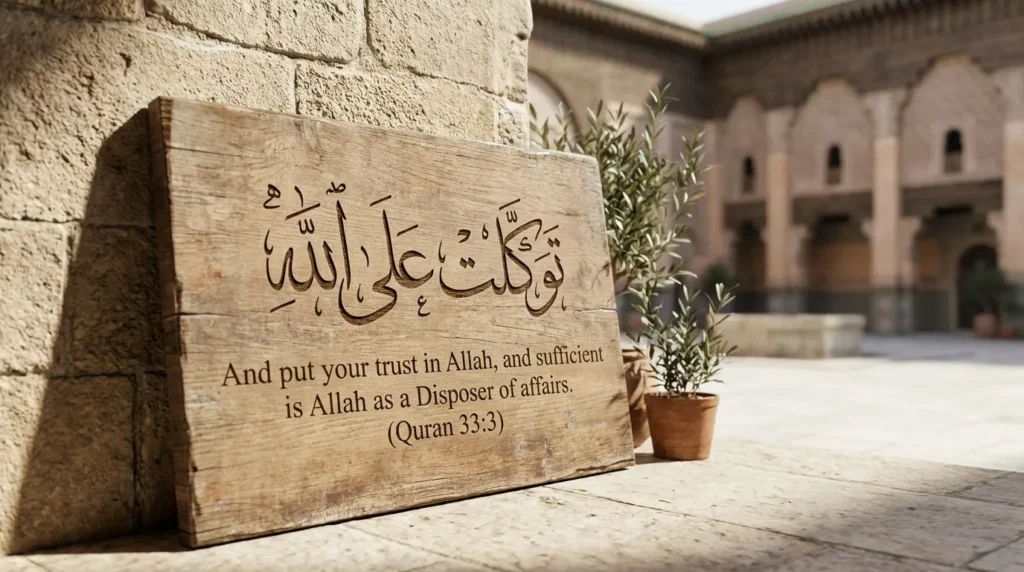 تَوَكَّلْتُ عَلَى اللَّهِ
And put your trust in Allah, and sufficient
is Allah as a Disposer of affairs.
(Quran 33:3)